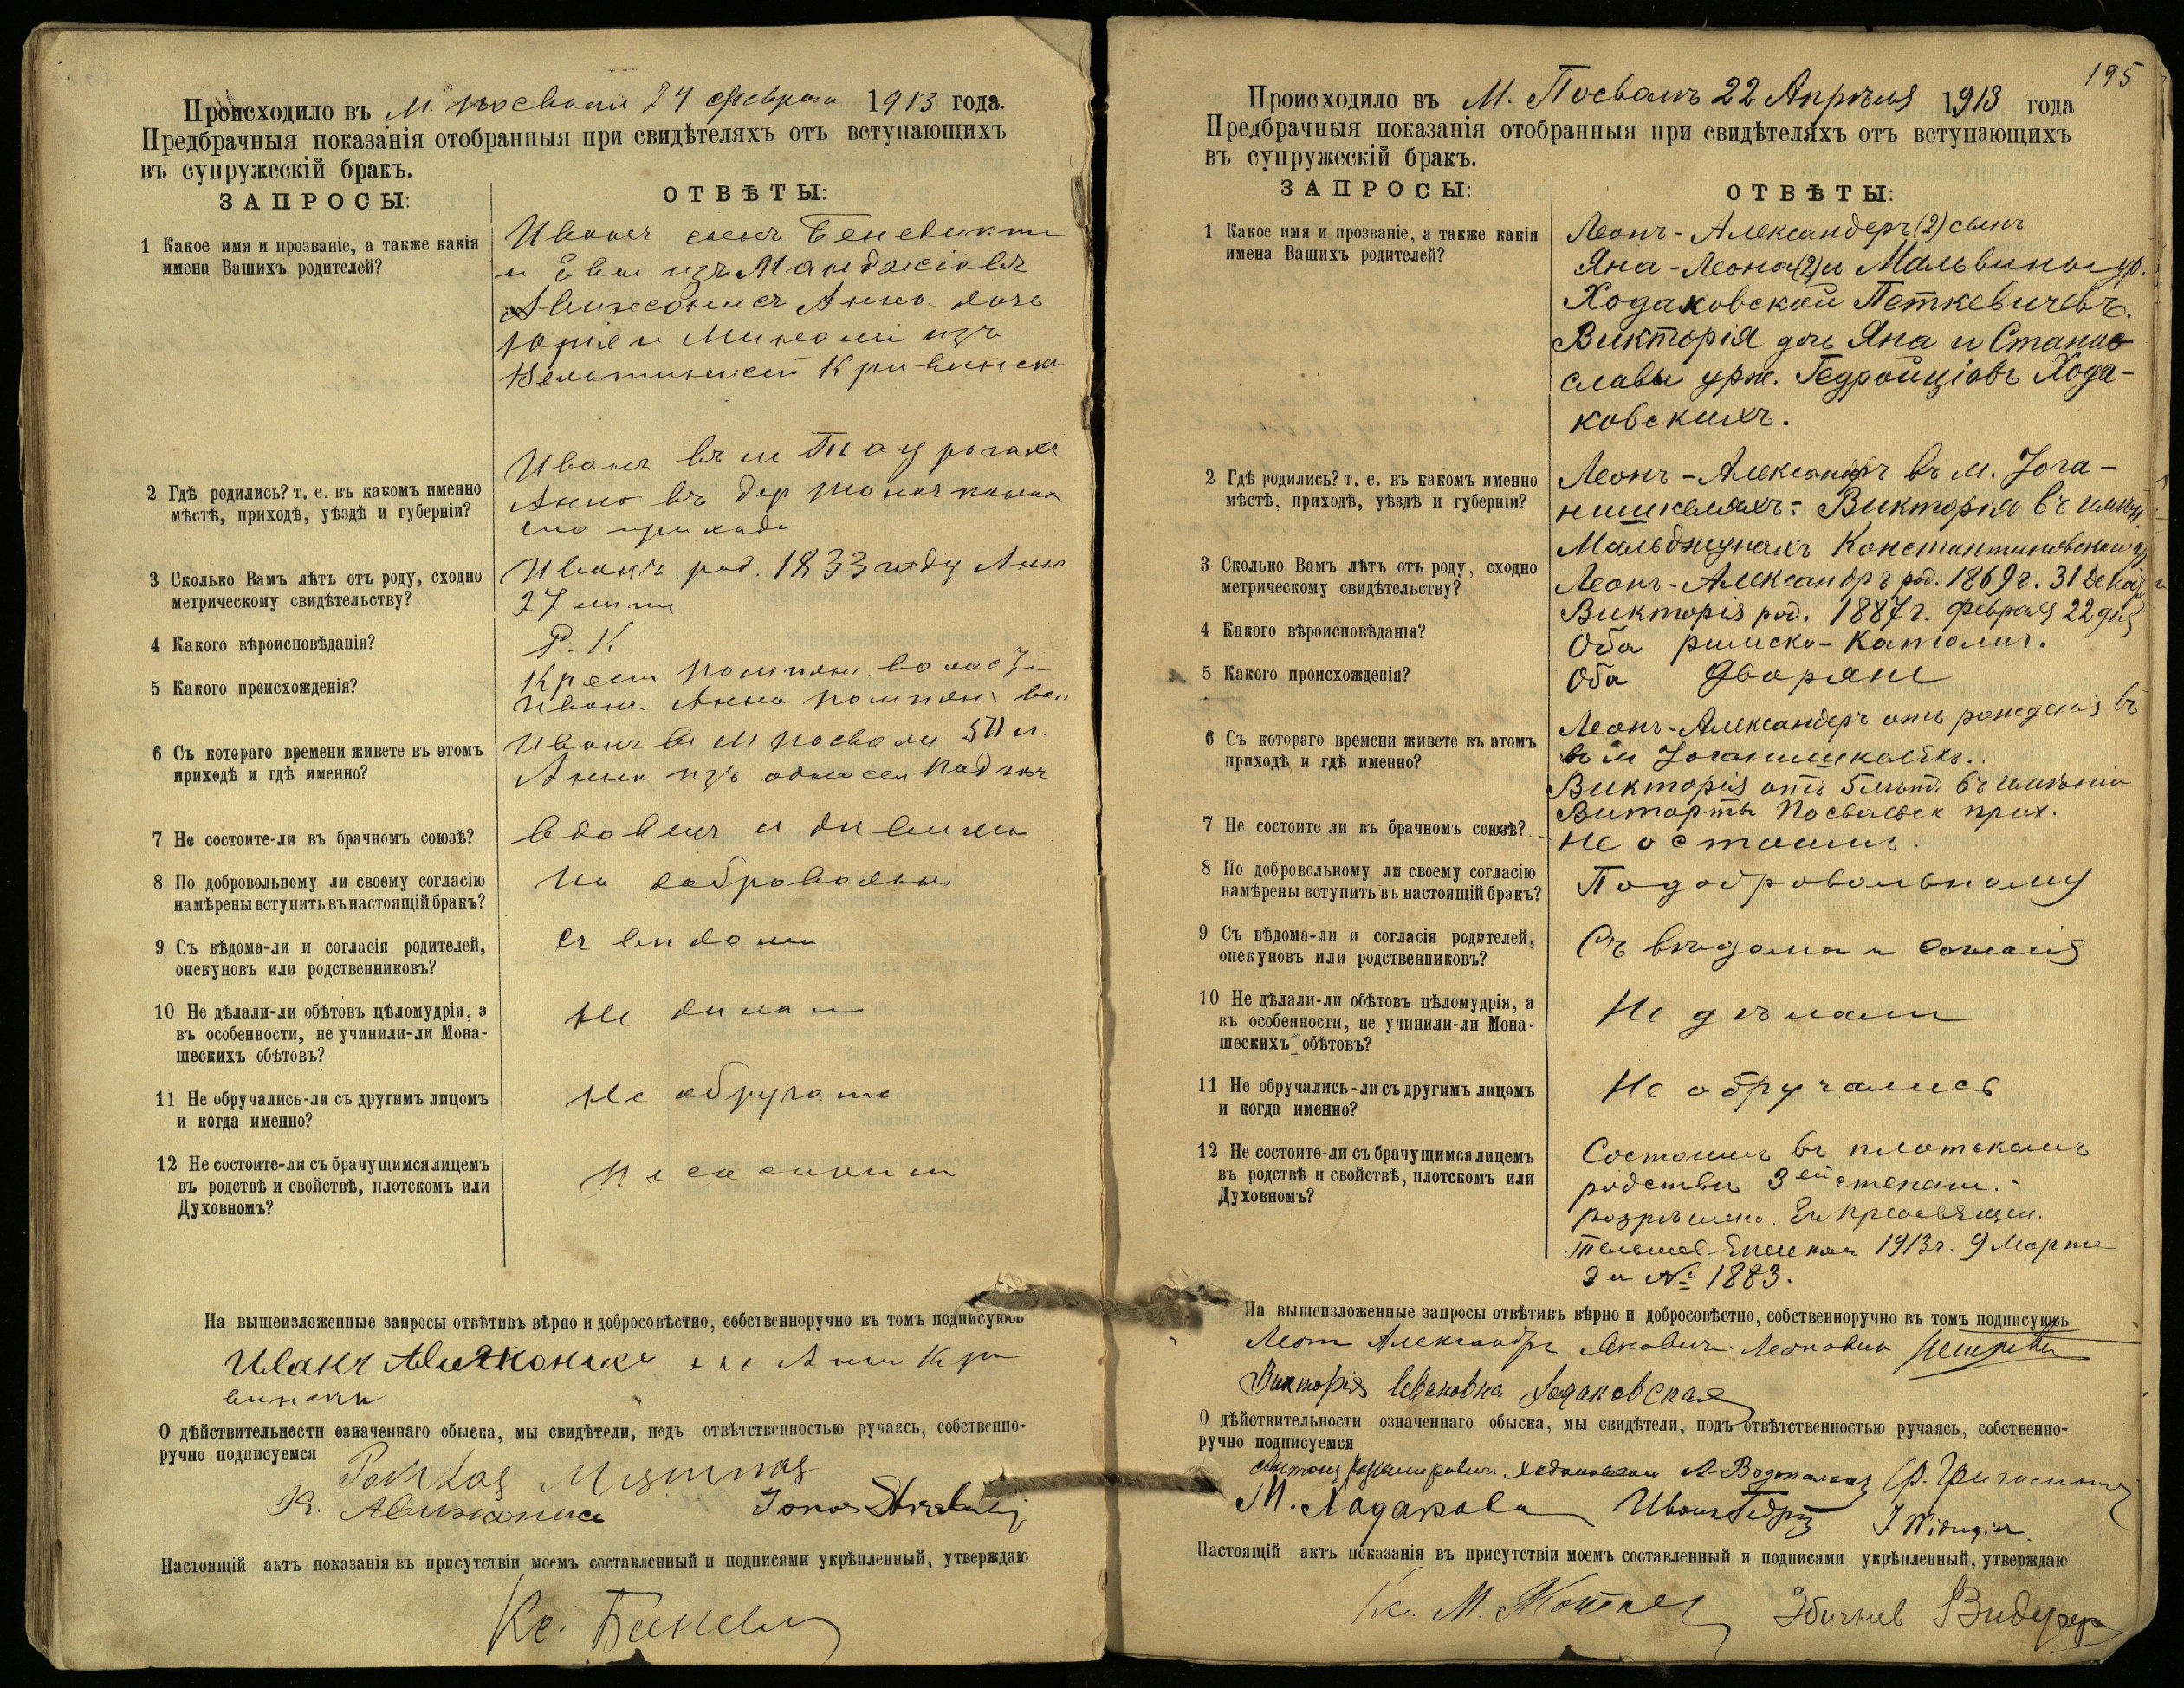 Происходило въ М. Посволи 24 Февраля 1913 года.
Предбрачныя показанія отобранныя при свидѣтеляхъ отъ вступающихъ
въ супружескій бракъ.
ЗАПРОСЫ:
ОТВѢТЫ:
1 Какое имя и прозваніе, а также какія
имена Вашихъ родителей?
Иванъ сынъ Бенедикта
и Евы изъ
Анна дочь
Юрія и изъ
2 Гдѣ родились? т. е. въ какомъ именно
мѣстѣ, приходѣ, уѣздѣ и губерніи?
Иванъ въ
Анна въ дер
прихода
3 Сколько Вамъ лѣтъ отъ роду, сходно
метрическому свидѣтельству?
Иванъ род. 1833 году Анна
27 лѣтъ
4 Какого вѣроисповѣданія?
Р. К.
5 Какого происхожденія?
Крест волости
Иванъ. Анна
6 Съ котораго времени живете въ этомъ
приходѣ и гдѣ именно?
Иванъ въ М Посволи 50 л.
Анна изъ
7 Не состоите-ли въ брачномъ союзѣ?
вдовецъ и дивица
8 По добровольному ли своему согласію
намѣрены вступить въ настоящій бракъ?
По добровольн
9 Съ вѣдома-ли и согласія родителей,
опекуновъ или родственниковъ?
съ видома
10 Не дѣлали-ли обѣтовъ цѣломудрія, а
въ особенности, не учинили-ли Мона-
шескихъ обѣтовъ?
Не дилали
11 Не обручались-ли съ другимъ лицомъ
и когда именно?
Не обручали
12 Не состоите-ли съ брачущимся лицемъ
въ родствѣ и свойствѣ, плотскомъ или
Духовномъ?
Не состоим
На вышеизложенные запросы отвѣтивъ вѣрно и добросовѣстно, собственноручно въ томъ подписуюсь
Иванъ Анна
О дѣйствительности означеннаго обыска, мы свидѣтели, подъ отвѣтственностью ручаясь, собственно-
ручно подписуемся
К. Авижонис Jonas
Настоящій актъ показанія въ присутствіи моемъ составленный и подписями укрѣпленный, утверждаю
Кс.
195
Происходило въ М. Посволь 22 Апрѣля 1913 года
Предбрачныя показанія отобранныя при свидѣтеляхъ отъ вступающихъ
въ супружескій бракъ.
ЗАПРОСЫ:
ОТВѢТЫ:
1 Какое имя и прозваніе, а также какія
имена Вашихъ родителей?
Леонъ-Александеръ (2) сынъ
Яна-Леона (2) и Мальвины ур.
Ходаковской Петкевичевъ.
Викторія дочь Яна и Станис
славы урж. Гедройціовъ Хода-
ковскихъ.
2 Гдѣ родились? т. е. въ какомъ именно
мѣстѣ, приходѣ, уѣздѣ и губерніи?
Леонъ-Александръ въ м. Іога-
нишкеляхъ: Викторія въ имѣн
Мальджунахъ Константиновскаго
3 Сколько Вамъ лѣтъ отъ роду, сходно
метрическому свидѣтельству?
Леонъ-Александръ род. 1869 г. 31 Декаб
Викторія род. 1887 г. Февраля 22 дня
4 Какого вѣроисповѣданія?
Оба римско-католич.
5 Какого происхожденія?
Оба дворяне
6 Съ котораго времени живете въ этомъ
приходѣ и гдѣ именно?
Леонъ-Александеръ отъ рожденія въ
въ м Іоганишкеляхъ.
Викторія отъ 5 лѣтъ въ имѣніи
Посвольск прих.
7 Не состоите ли въ брачномъ союзѣ?
Не остоимъ.
8 По добровольному ли своему согласію
намѣрены вступить въ настоящій бракъ?
По добровольному
9 Съ вѣдома-ли и согласія родителей,
опекуновъ или родственниковъ?
Съ вѣдома и согласія
10 Не дѣлали-ли обѣтовъ цѣломудрія, а
въ особенности, не учинили-ли Мона-
шескихъ обѣтовъ?
Не дѣлали
11 Не обручались-ли съ другимъ лицомъ
и когда именно?
Не обручались
12 Не состоите-ли съ брачущимся лицемъ
въ родствѣ и свойствѣ, плотскомъ или
Духовномъ?
Состоимъ въ плотскомъ
родстве 3 ей степени.-
розрѣшено. Преосвящен.
Тельшев. Епископ 1913 г. 9 Марта
за № 1883.
На вышеизложенные запросы отвѣтивъ вѣрно и добросовѣстно, собственноручно въ томъ подписуюсь
Леонъ Александръ
Викторія Ивановна Ходаковская
О дѣйствительности означеннаго обыска, мы свидѣтели, подъ отвѣтственностью ручаясь, собственно-
ручно подписуемся
Антонъ
М. Ходакова Иванъ
Настоящій актъ показанія въ присутствіи моемъ составленный и подписями укрѣпленный, утверждаю
Кс. М.